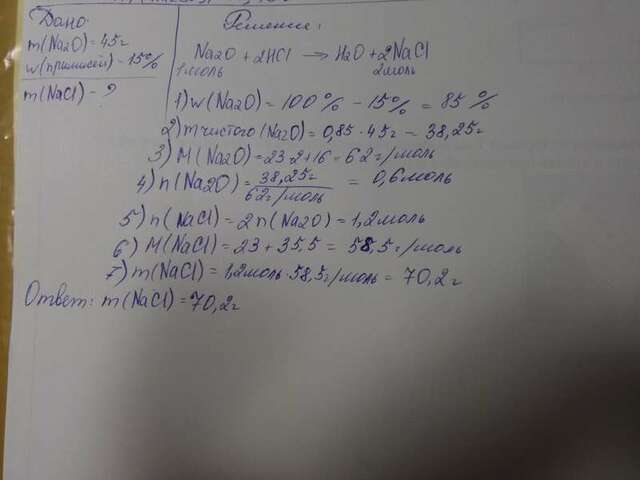 Дано
Решение:
m(Na2O) = 45г
w(примесей) - 15%
m(NaCl) - ?
Na2O + 2HCl → H2O + 2NaCl
1 моль 2 моль
1) w(Na2O) = 100% - 15% = 85%
2) m чистого (Na2O) = 0,85 · 45г = 38,25г
3) M(Na2O) = 23·2+16 = 62 г/моль
4) n(Na2O) = 38,25г / 62 г/моль = 0,6 моль
5) n(NaCl) = 2n(Na2O) = 1,2 моль
6) M(NaCl) = 23 + 35,5 = 58,5 г/моль
7) m(NaCl) = 1,2 моль · 58,5 г/моль = 70,2 г
Ответ: m(NaCl) = 70,2 г